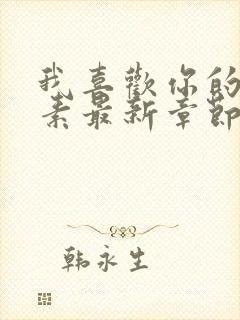 我喜歡你的
素最新章節
韩永生